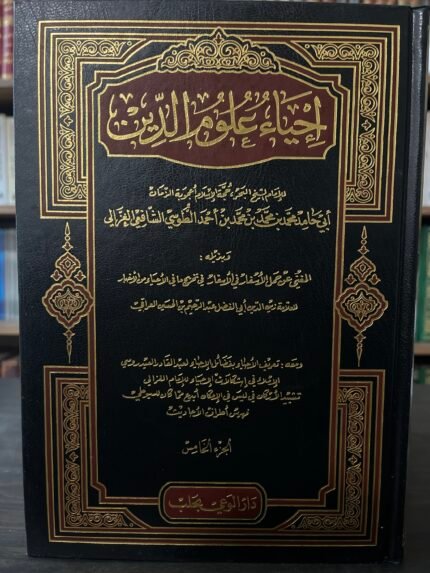 إحياء علوم الدين
للإمام الشيخ البحر حجة الإسلام أعجوبة الزمان
أبي حامد محمد بن محمد بن محمد بن أحمد الطوسي الشافعي الغزالي
وبذيله :
المغني عن حمل الأسفار في الأسفار في تخريج ما في الأحياء من الأخبار
للعلامة زين الدين أبي الفضل عبد الرحيم بن الحسين العراقي
ومعه : تعريف الأحياء بفضائل الإحياء لعبد القادر العيدروسي
الإملاء في إشكالات الإحياء للإمام الغزالي
تشييد الأركان في ليس في الإمكان أبدع مما كان للسيوطي
فهرس أطراف الأحاديث
الجزء الخامس
دار الوعي بحلب